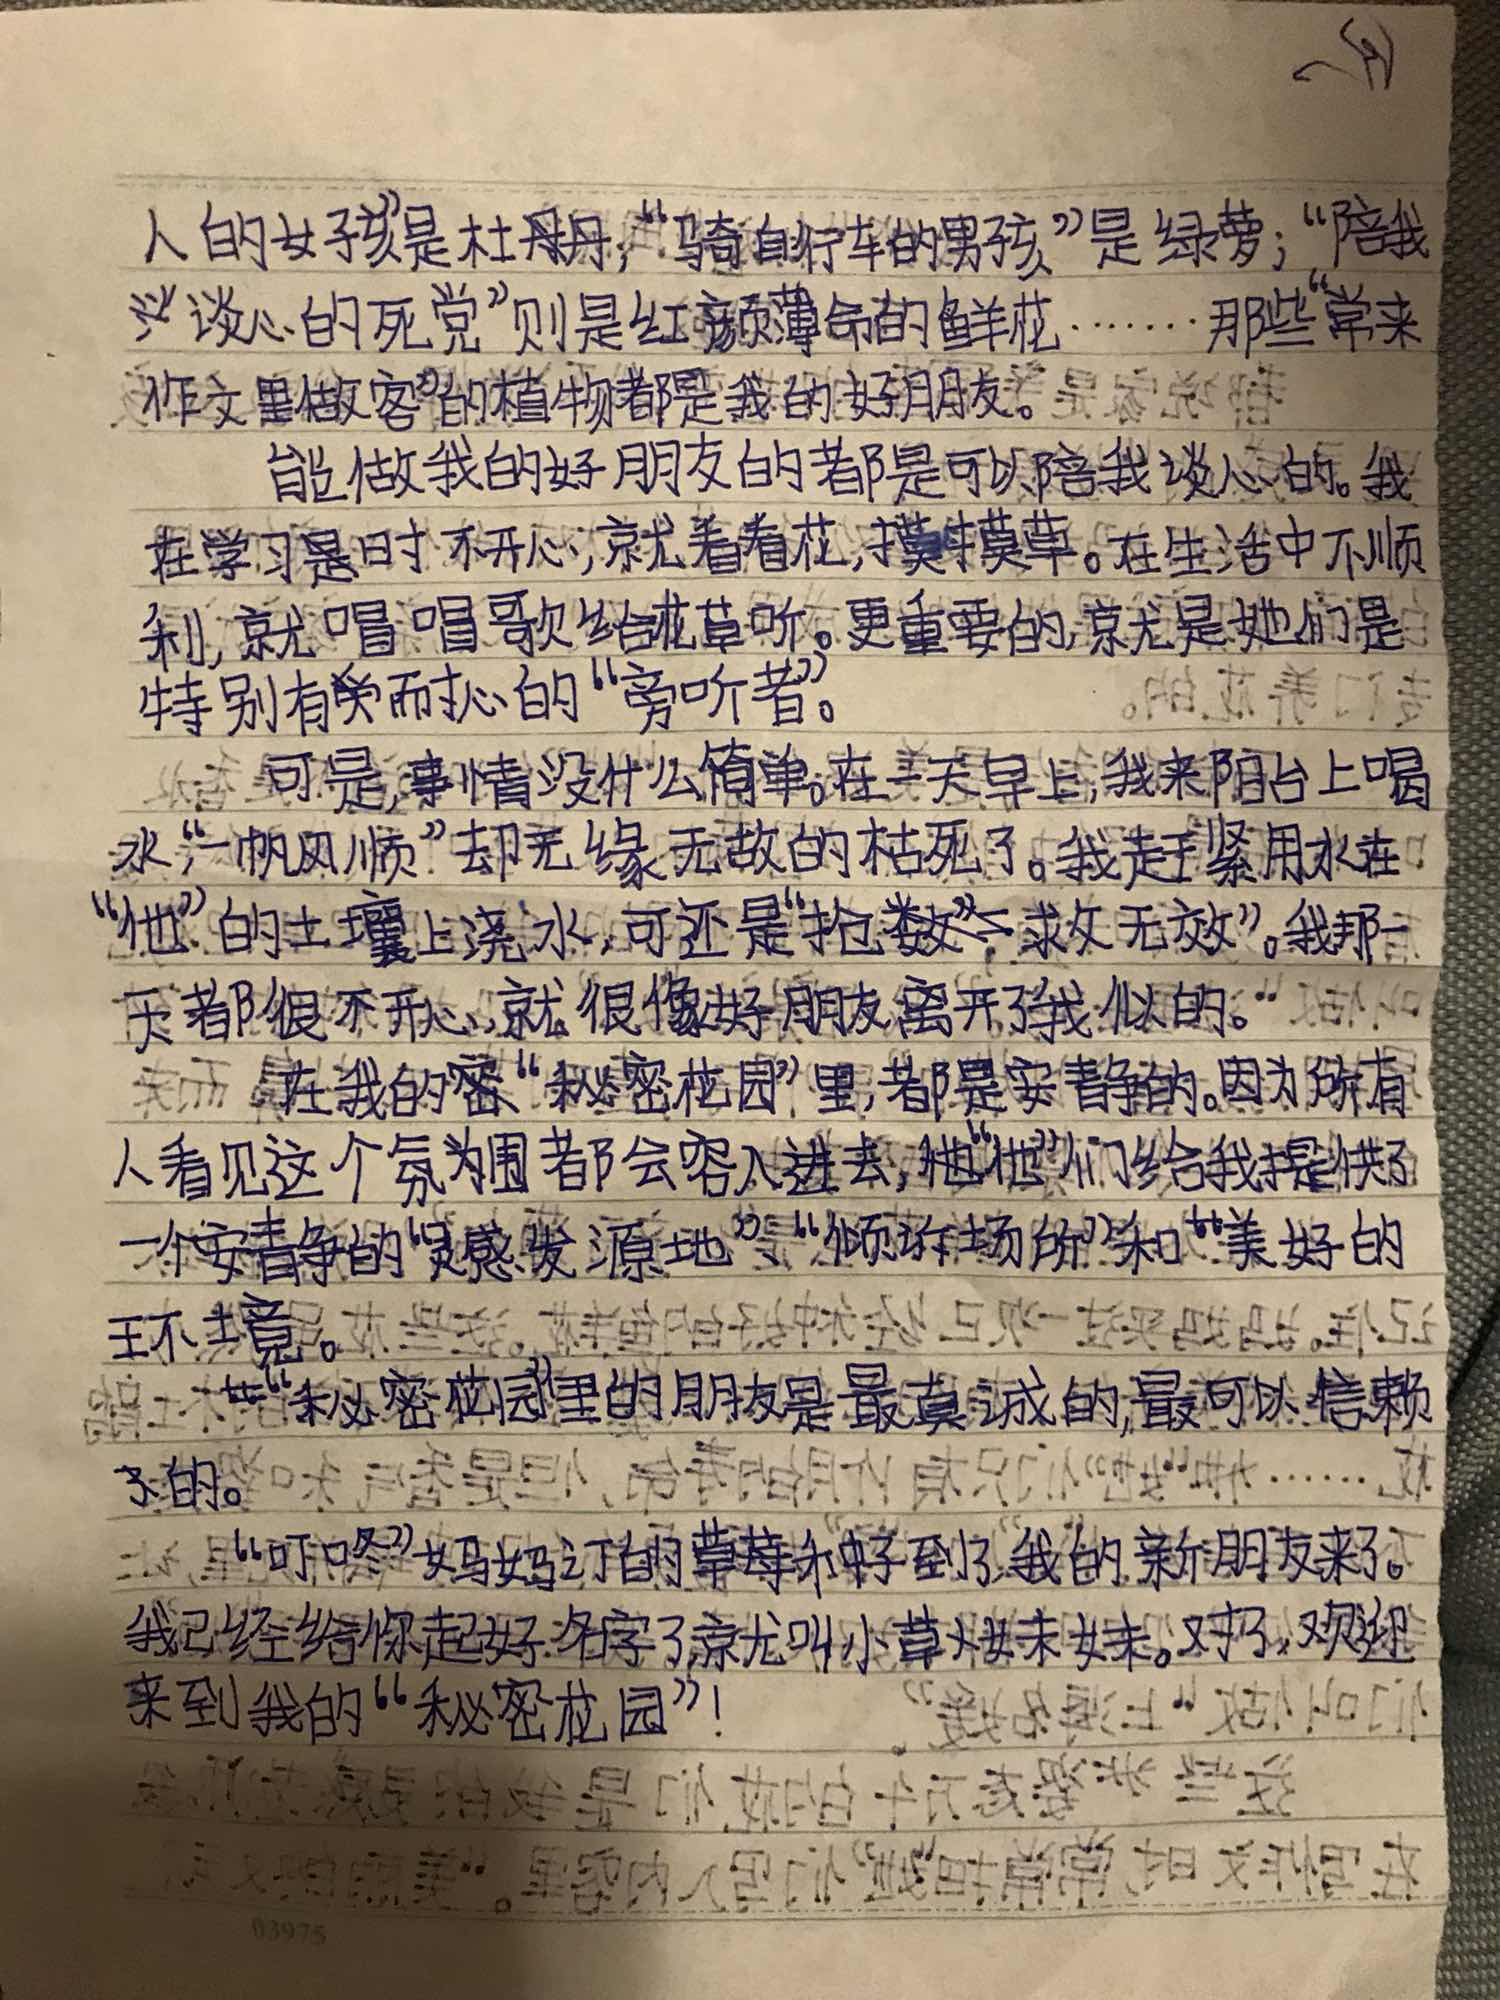 人的女孩”是杜丹丹；“骑自行车的男孩”是绿萝；“陪我
谈心的死党”则是红颜薄命的鲜花……那些“常来
作文里做客”的植物都是我的好朋友。
能做我的好朋友的都是可以陪我谈心的。我
在学习是时不开心，就看看花，摸摸草。在生活中不顺
利，就唱唱歌给花草听。更重要的，就是她们是
特别有耐心的“旁听者”。
可是，事情没什么简单。在一天早上，我来阳台上喝
水，“一帆风顺”却无缘无故的枯死了。我赶紧用水在
“他”的土壤上浇水，可还是“抢救无效”。我那一
天都很不开心，就很像好朋友离开了我似的。
在我的“秘密花园”里，都是安静的。因为所有
人看见这个氛围都会容入进去，“他”们给我提供了
一个安静的“灵感发源地”、“倾诉场所”和“美好的
环境。
“秘密花园”里的朋友是最真诚的，最可以信赖
的。
“叮咚”妈妈订的草莓种子到了，我的新朋友来了。
我已经给你起好名字了，就叫小草妹妹。对了，欢迎
来到我的“秘密花园”！
03975